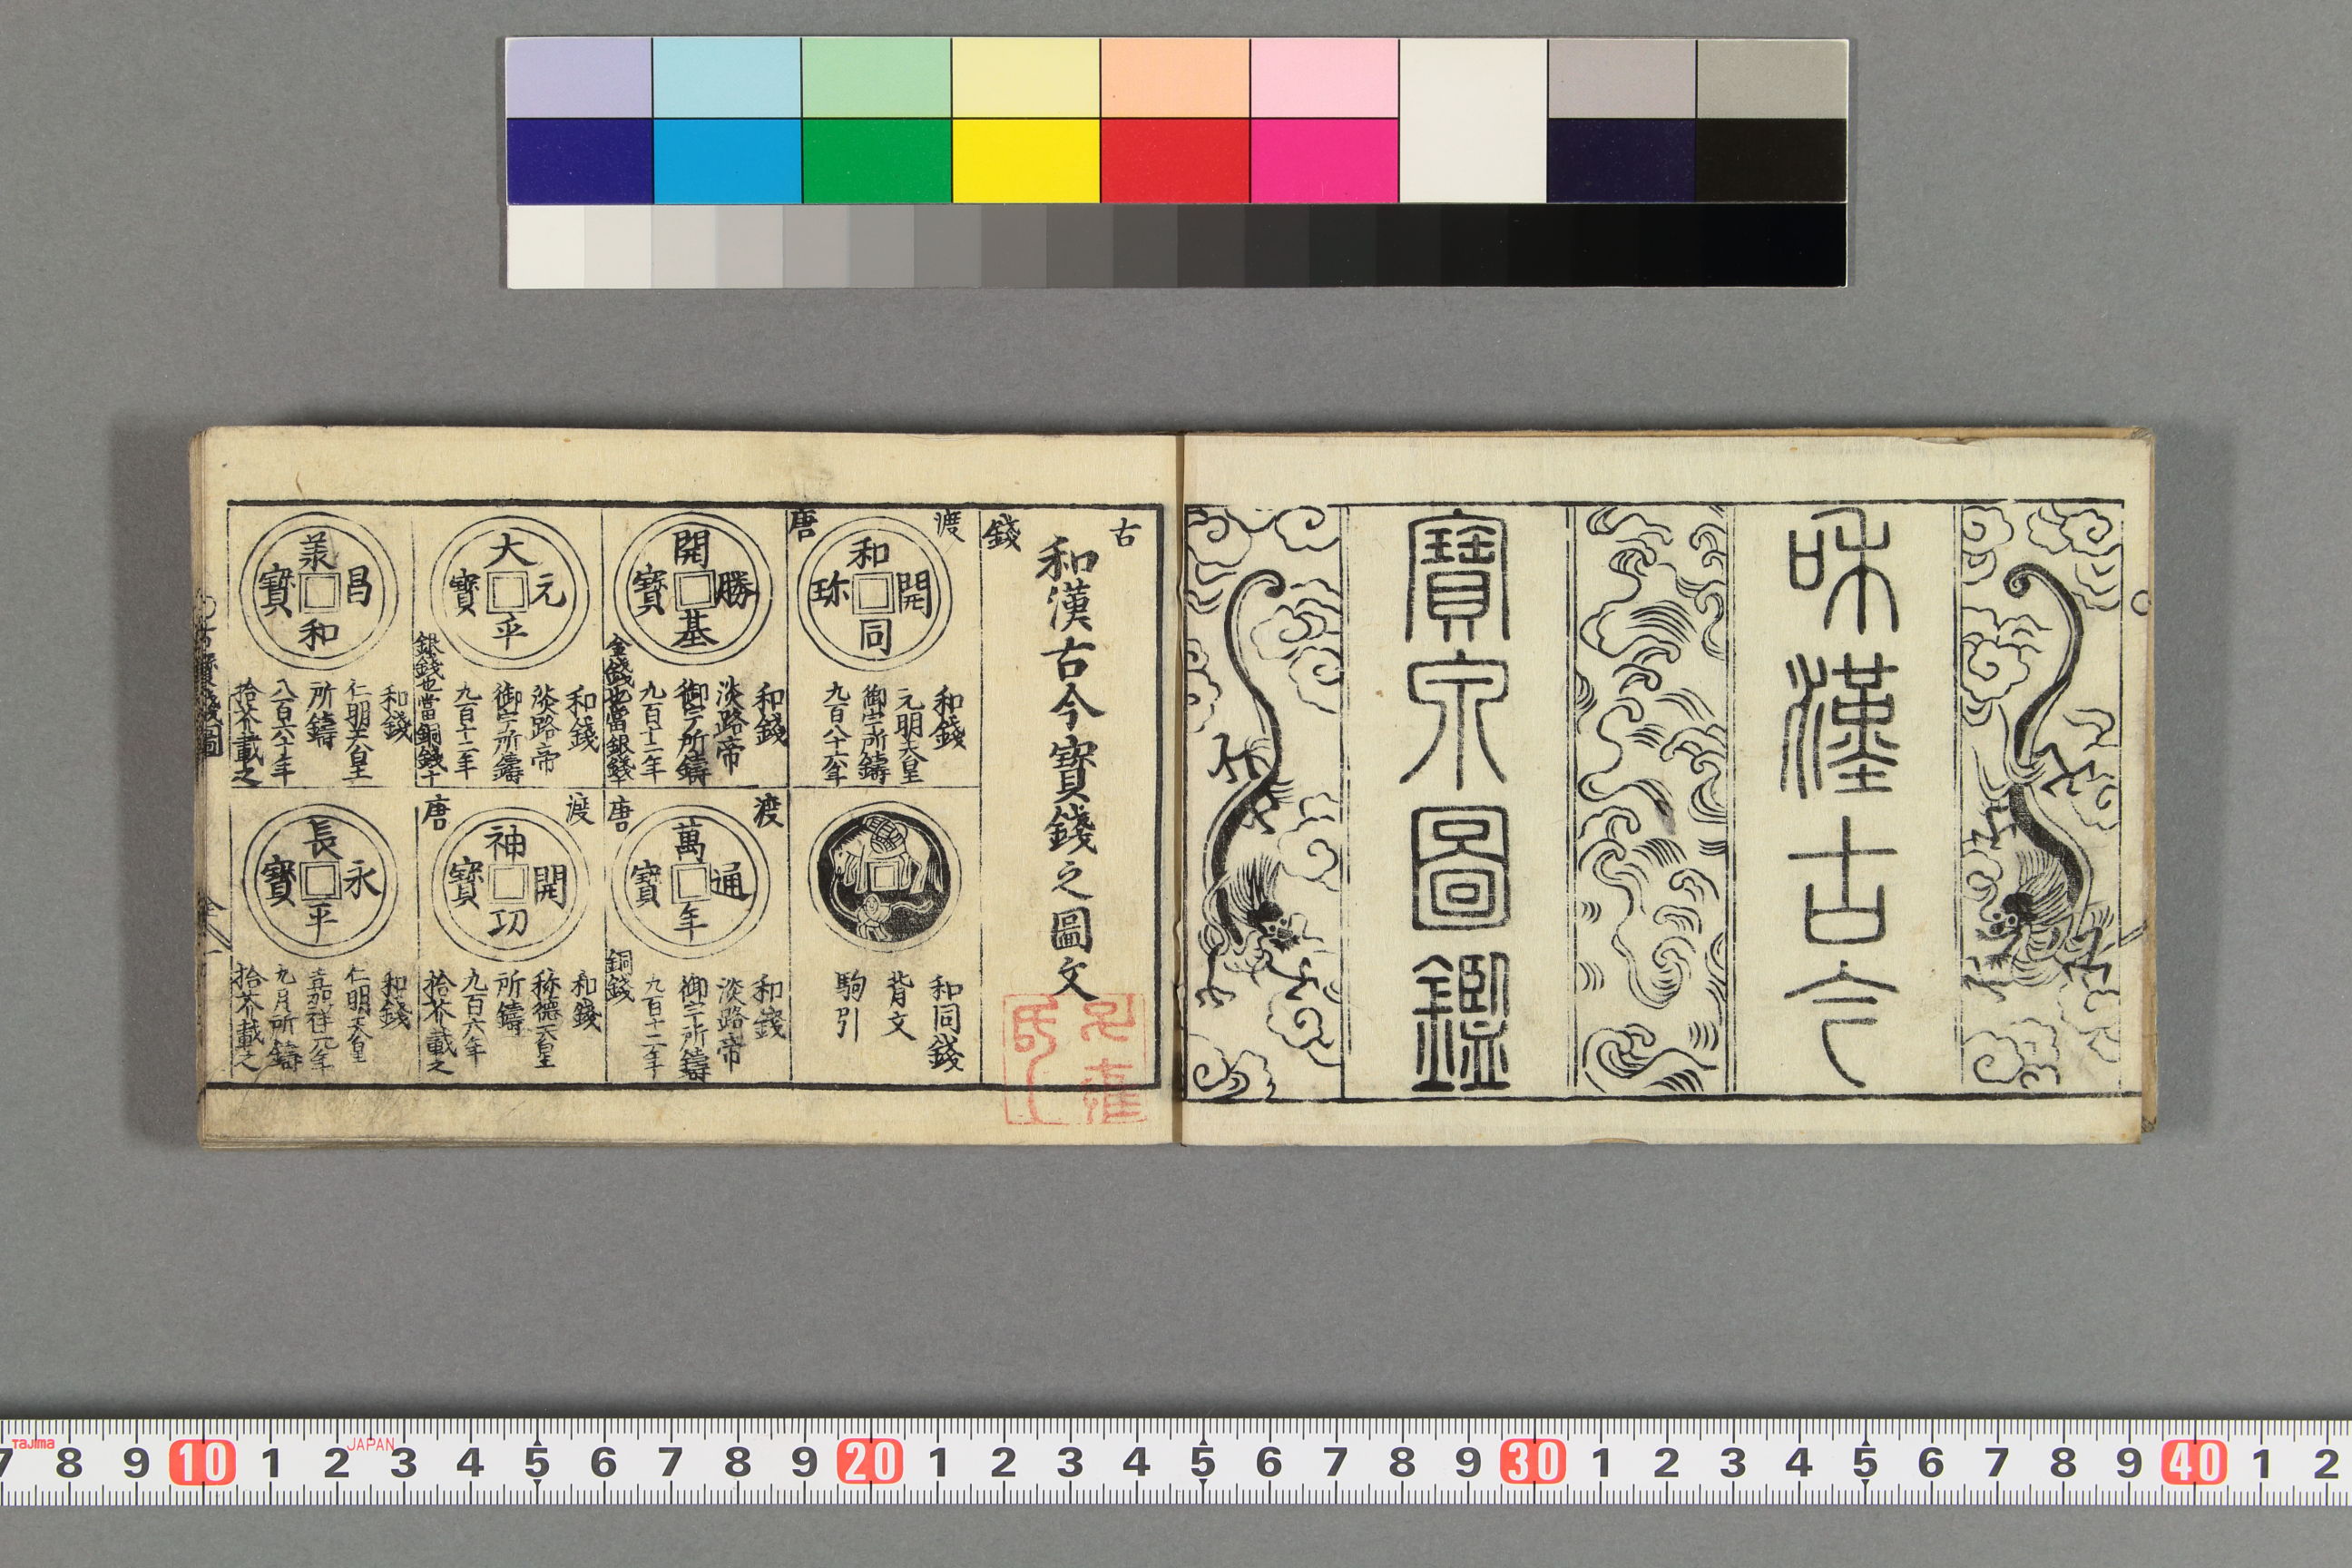 和漢古今
寶泉圖鑑
古
錢
和漢古今寶錢之圖文
渡
唐
和開同珎
和錢
元明天皇
御宇所鑄
九百八十六年
和同錢
背文
駒引
開勝基寶
和錢
淡路帝
御宇所鑄
九百十二年
金錢也當銀錢十
渡
唐
萬通年寶
和錢
淡路帝
御宇所鑄
九百十二年
銅錢
大元平寶
和錢
淡路帝
御宇所鑄
九百十二年
銀錢也當銅錢十
渡
唐
神開功寶
和錢
称德天皇
所鑄
九百六年
拾芥載之
羕昌和寶
和錢
仁明天皇
所鑄
八百六十年
拾芥載之
長永平寶
和錢
仁明天皇
嘉祥元年
九月所鑄
拾芥載之
7 8 9 10 1 2 3 4 5 6 7 8 9 20 1 2 3 4 5 6 7 8 9 30 1 2 3 4 5 6 7 8 9 40 1 2
Tajima
JAPAN